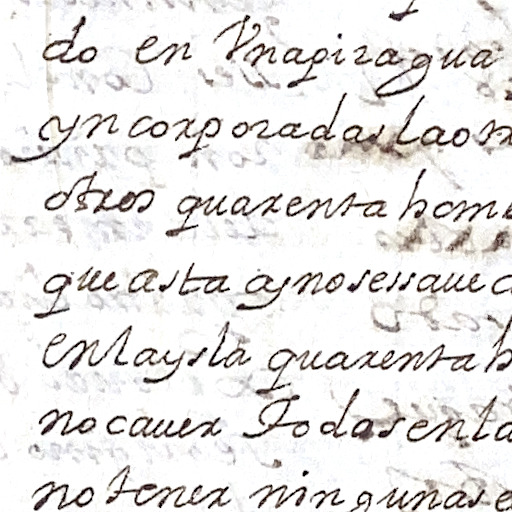 do en Vnapiragua
yncorporadas laon
otros quarenta home
que asta oynosessaue
enlaysla quarenta h
nocauer Todasenla
notener ningunas e